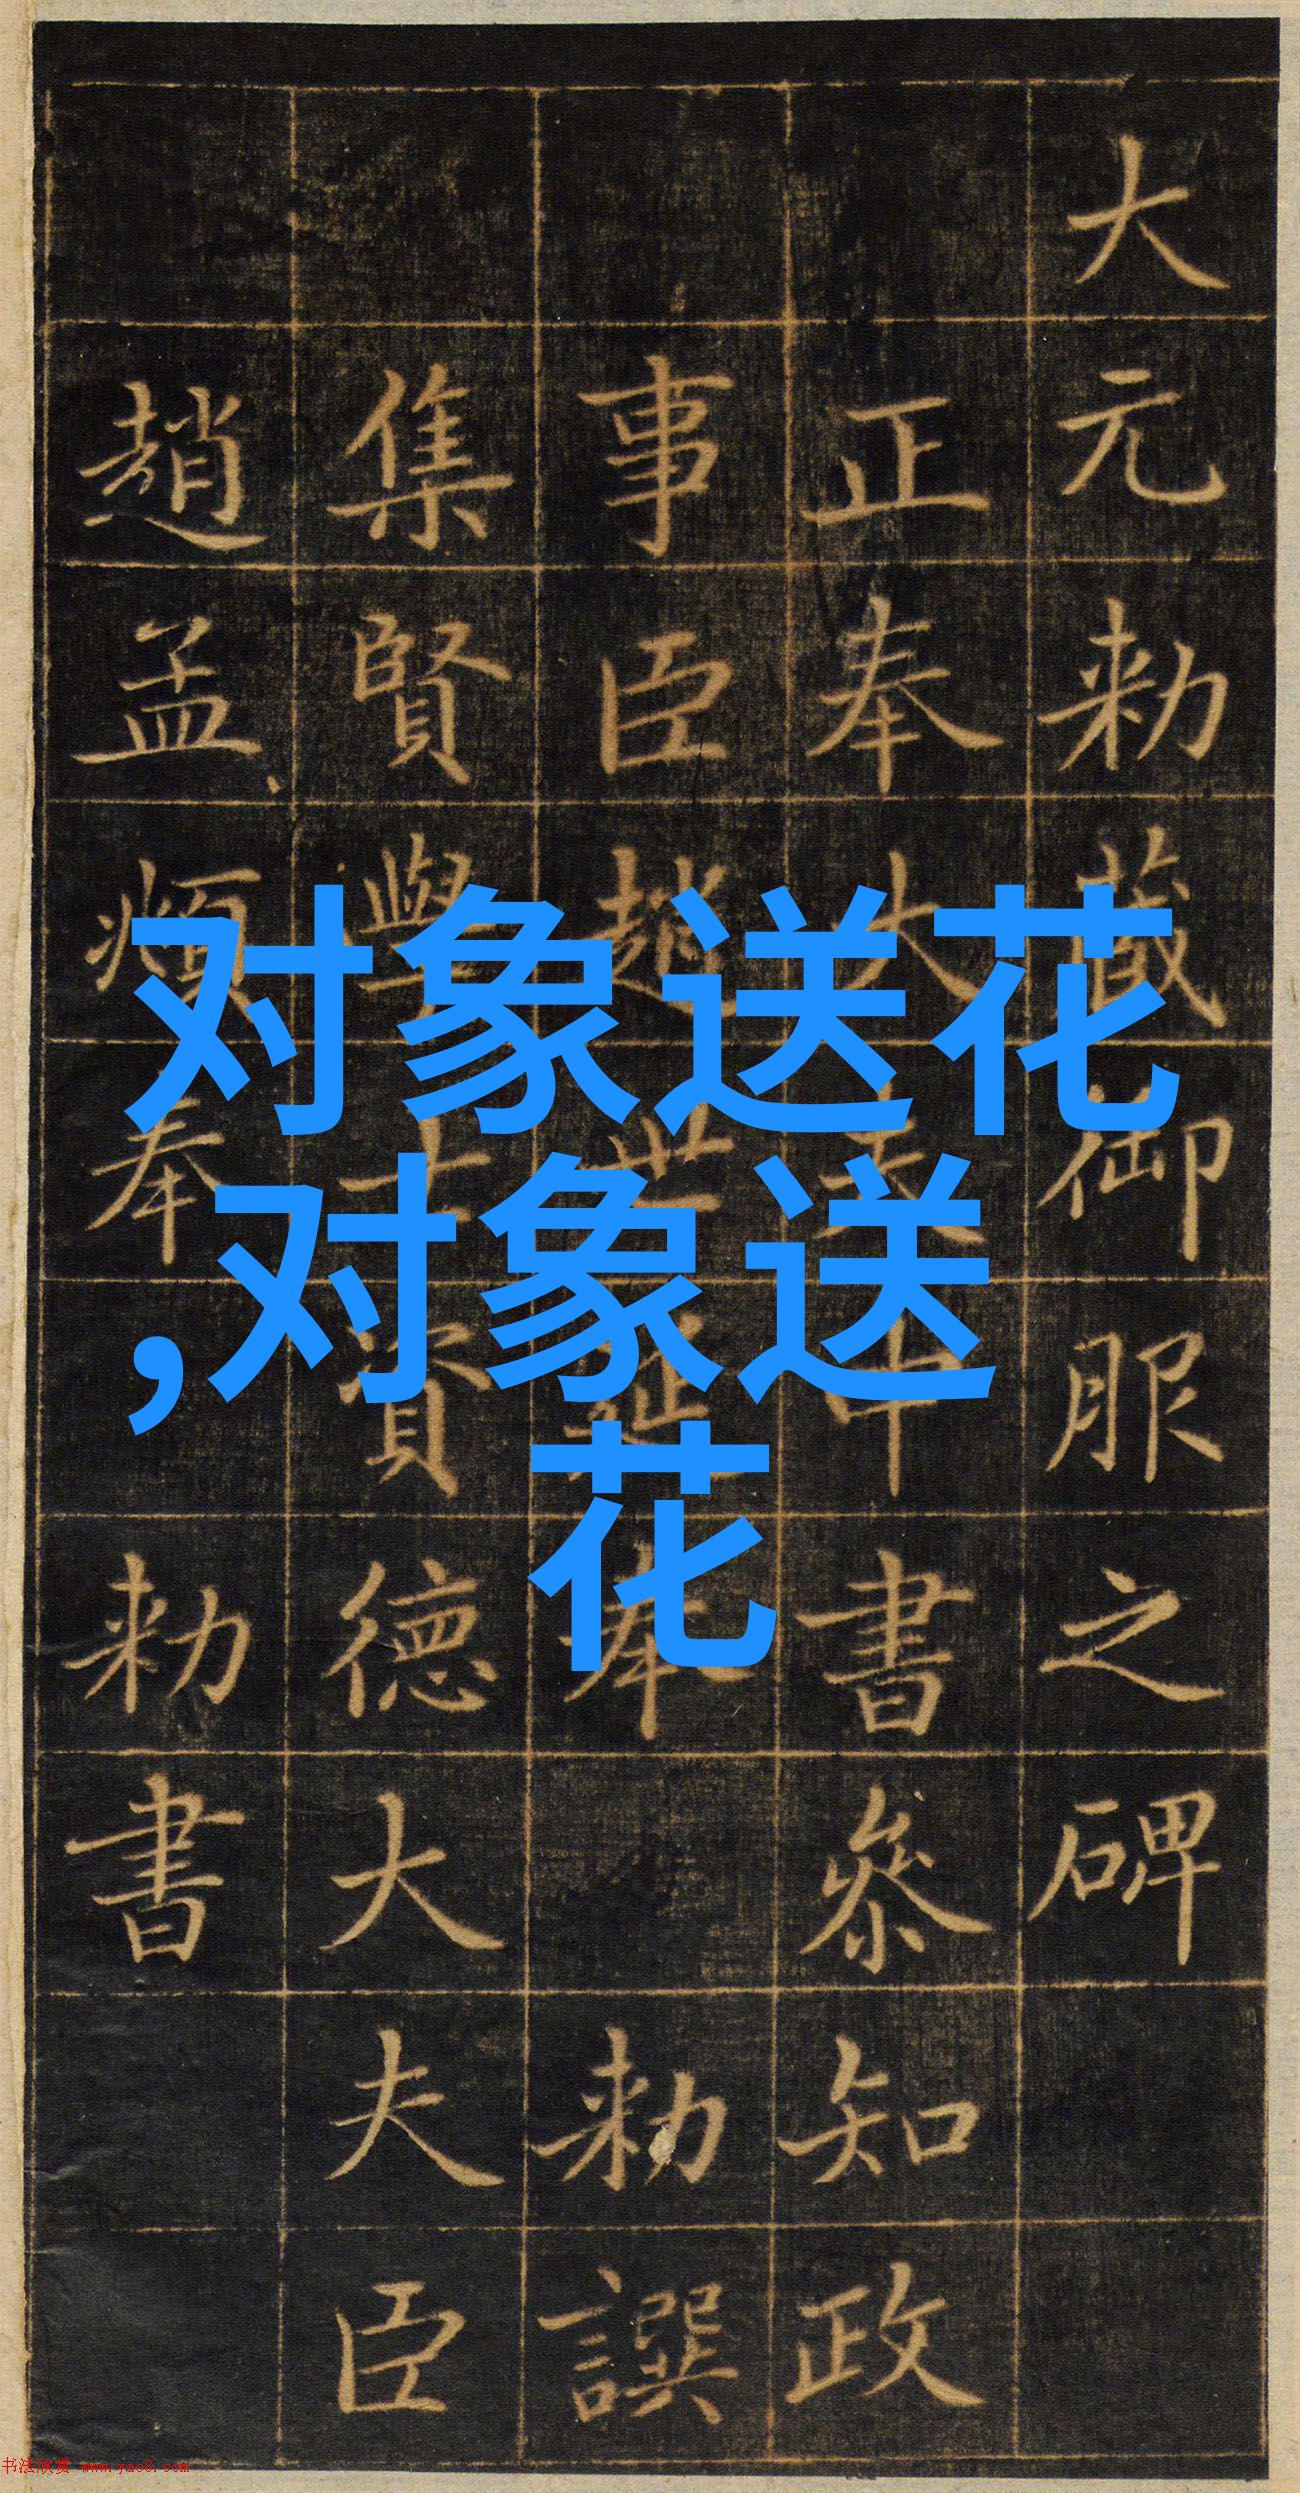 大元勅藏御服之碑
正奉大夫中書參知政
事臣趙世延奉 勅譔
集賢學士資德大夫臣
趙孟頫奉 勅書
对象送花
,对象送
花
书法欣赏 www.yac8.com